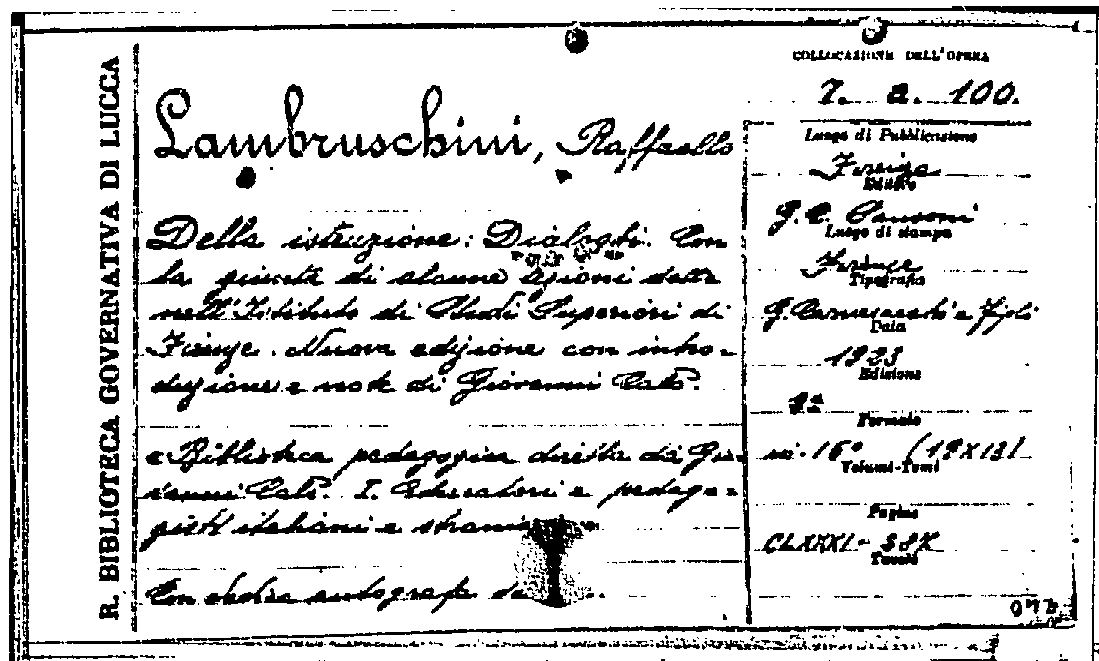 R. BIBLIOTECA GOVERNATIVA DI LUCCA
COLLOCAZIONE DELL'OPERA
7. a. 100.
Lambruschini, Raffaello
Della istruzione: Dialoghi. Con
la giunta di alcune lezioni dette
nell'Istituto di Studi Superiori di
Firenze. Nuova edizione con intro-
duzione e note di Giovanni Calò.
«Biblioteca pedagogica diretta da Gio-
vanni Calò. I. Educatori e pedago-
gisti italiani e stranieri
Con dedica autografa
Luogo di Pubblicazione
Firenze
Editore
G. C. Sansoni
Luogo di stampa
Firenze
Tipografia
G. Carnesecchi e Figli
Data
1923
Edizione
Formato
in-16° (19X13)
Volumi-Tomi
Pagine
CLXXXI-
Tavole